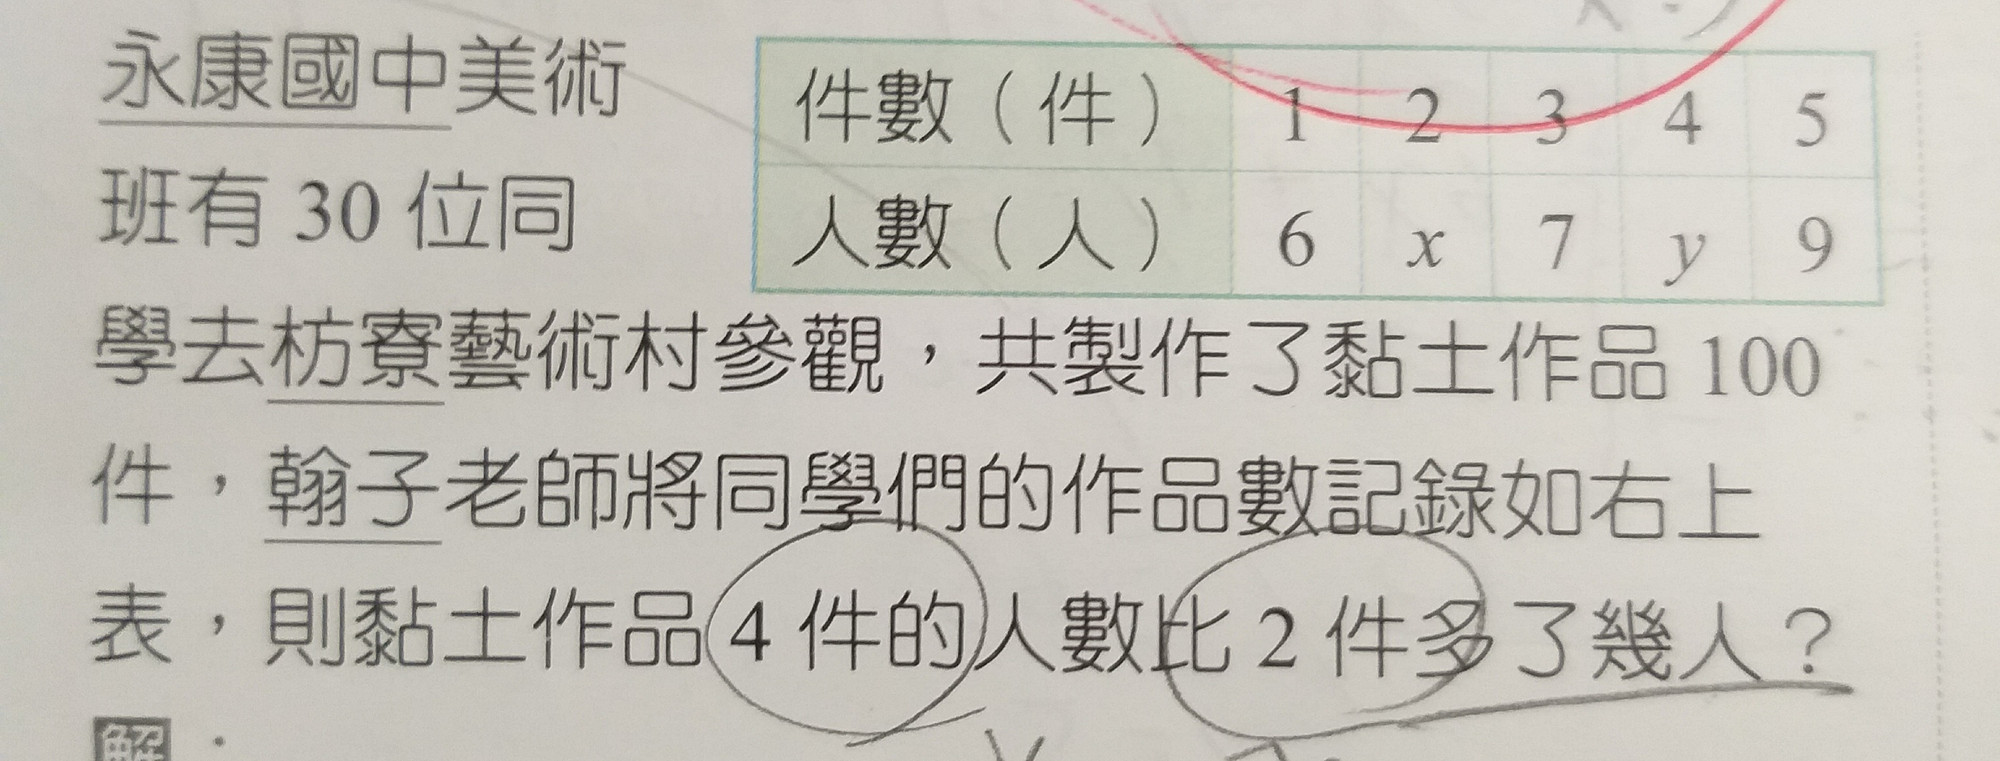 永康國中美術
班有 30 位同
件數（件） 1 2 3 4 5
人數（人） 6 x 7 y 9
學去枋寮藝術村參觀，共製作了黏土作品 100
件，翰子老師將同學們的作品數記錄如右上
表，則黏土作品 4 件的人數比 2 件多了幾人？
解：